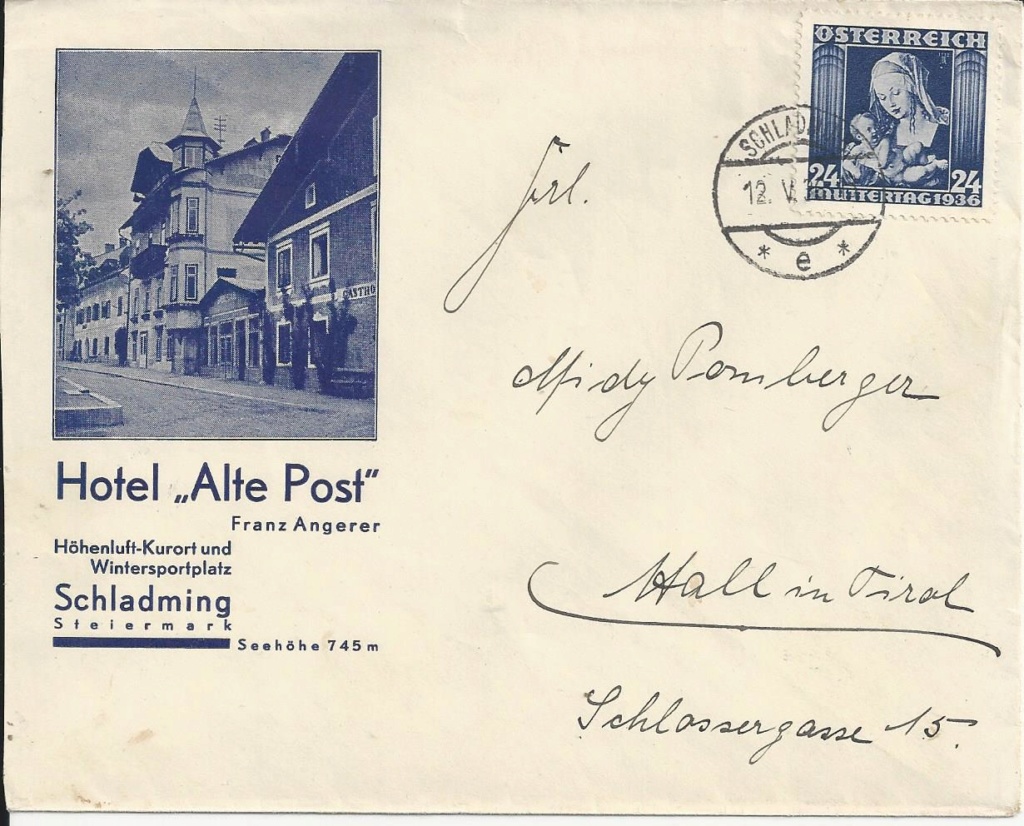 ÖSTERREICH
24 24
MUTTERTAG 1936
SCHLAD
12. V.
* e *
GASTHO
Hotel „Alte Post"
Franz Angerer
Höhenluft-Kurort und
Wintersportplatz
Schladming
Steiermark
Seehöhe 745 m
Frl.
Midy Pomberger
Hall in Tirol
Schlossergasse 15.